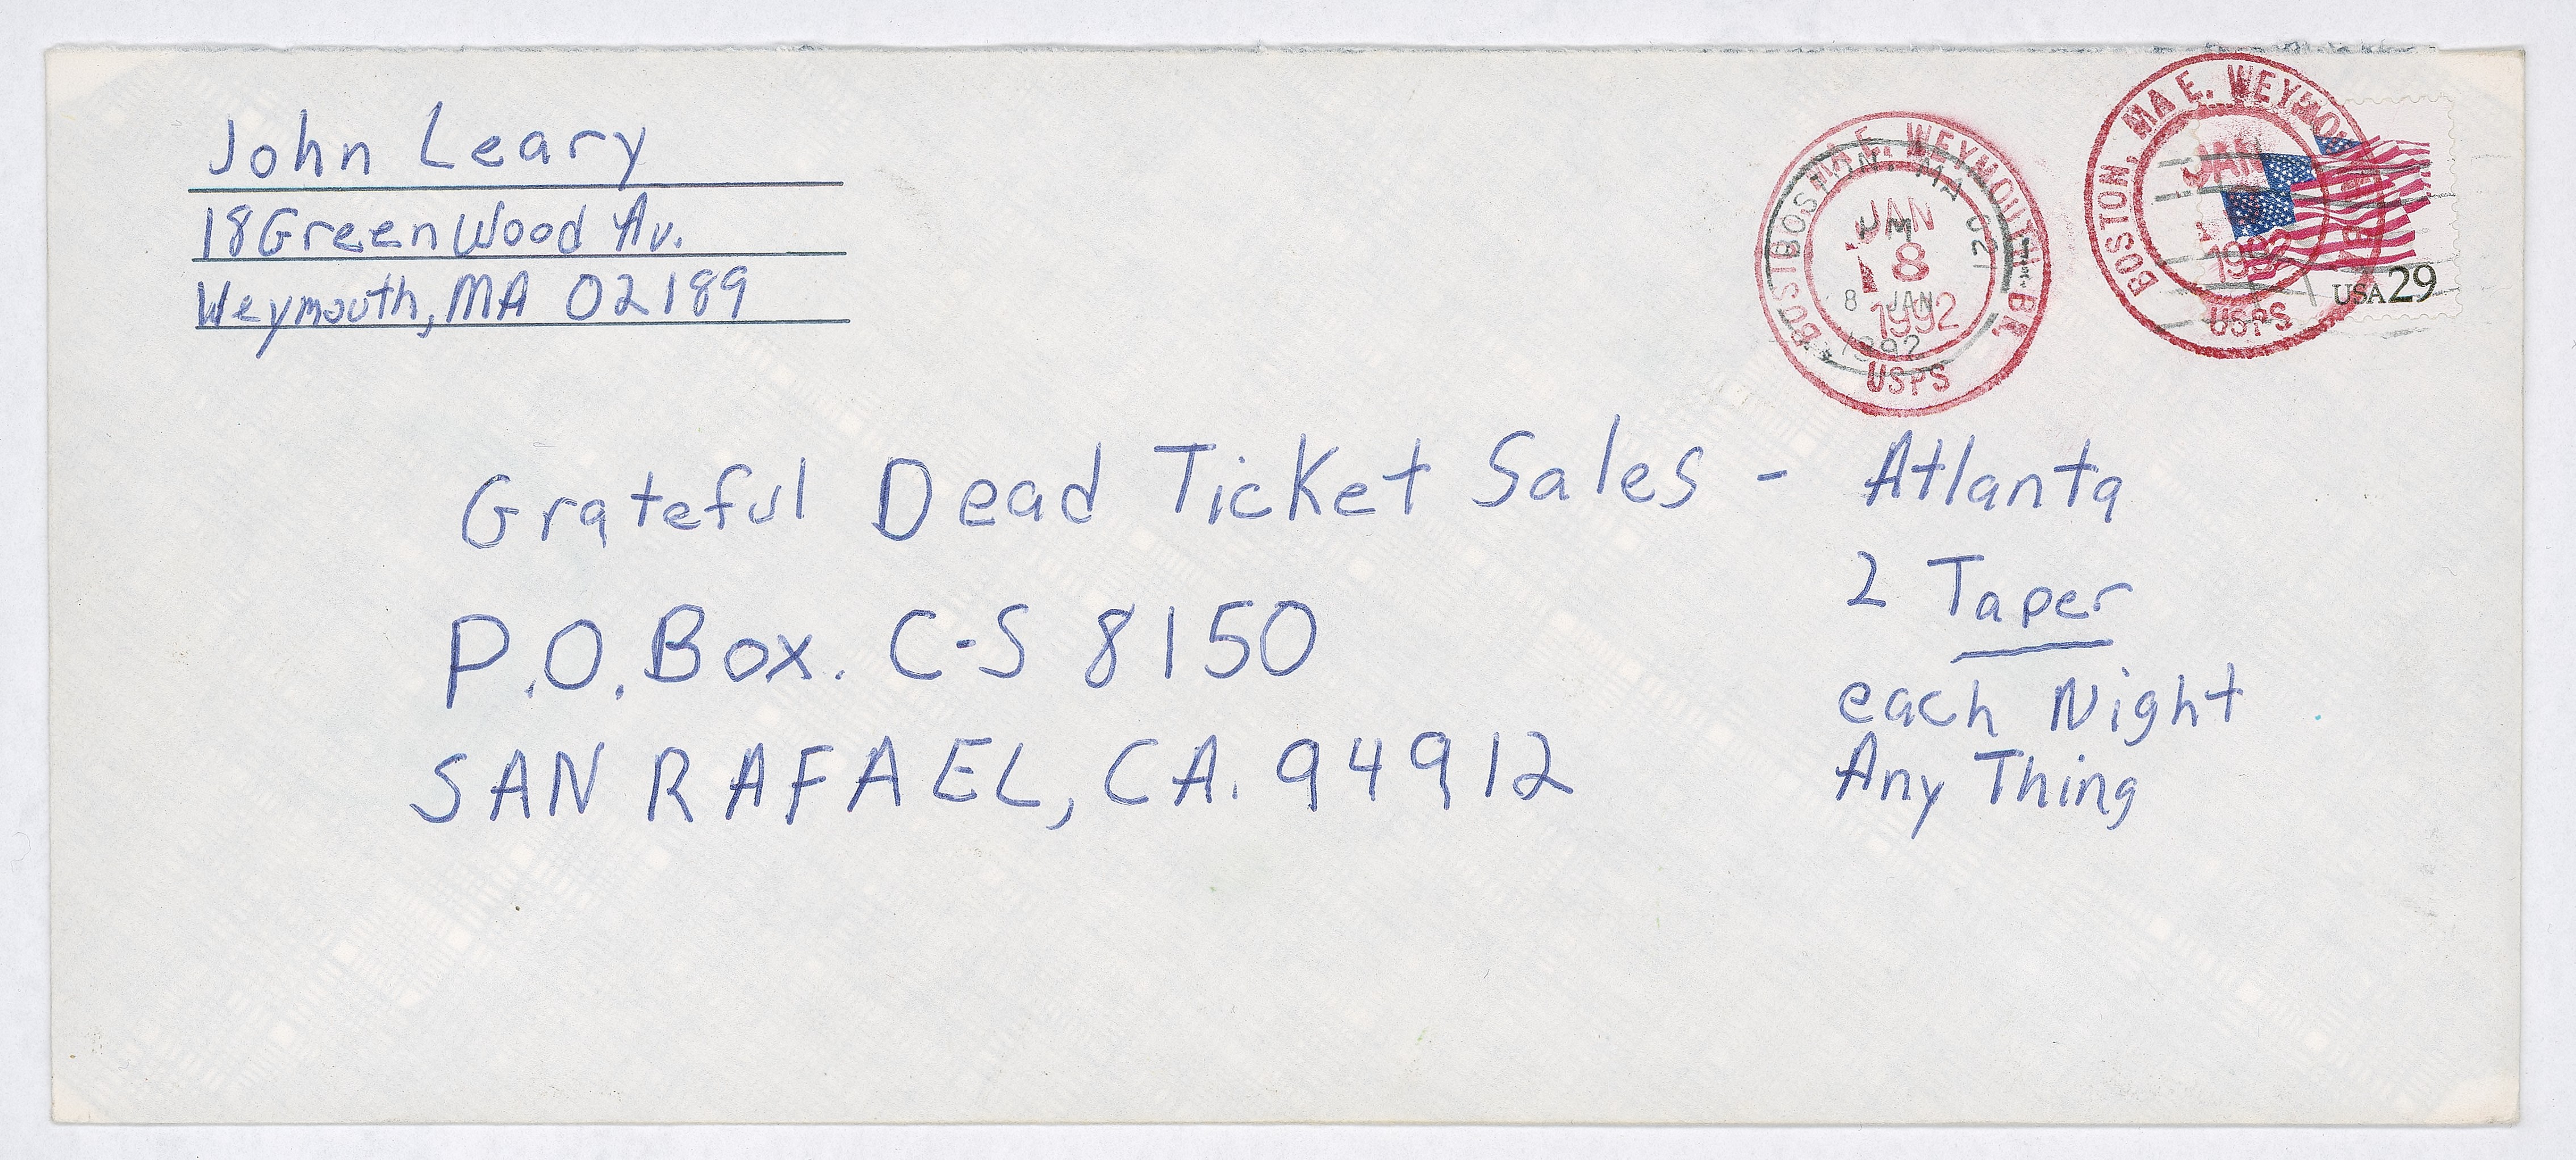 John Leary
18 Green Wood Av.
Weymouth, MA 02189
BOSTON, MA E. WEYMOUTH BR.
JAN
8
1992
USPS
PM
8 JAN
1992
BOSTON, MA E. WEYMOUTH BR.
JAN
1992
USPS
USA 29
Grateful Dead Ticket Sales - Atlanta
2 Taper
each Night
Any Thing
P.O. Box. C-S 8150
SAN RAFAEL, CA. 94912